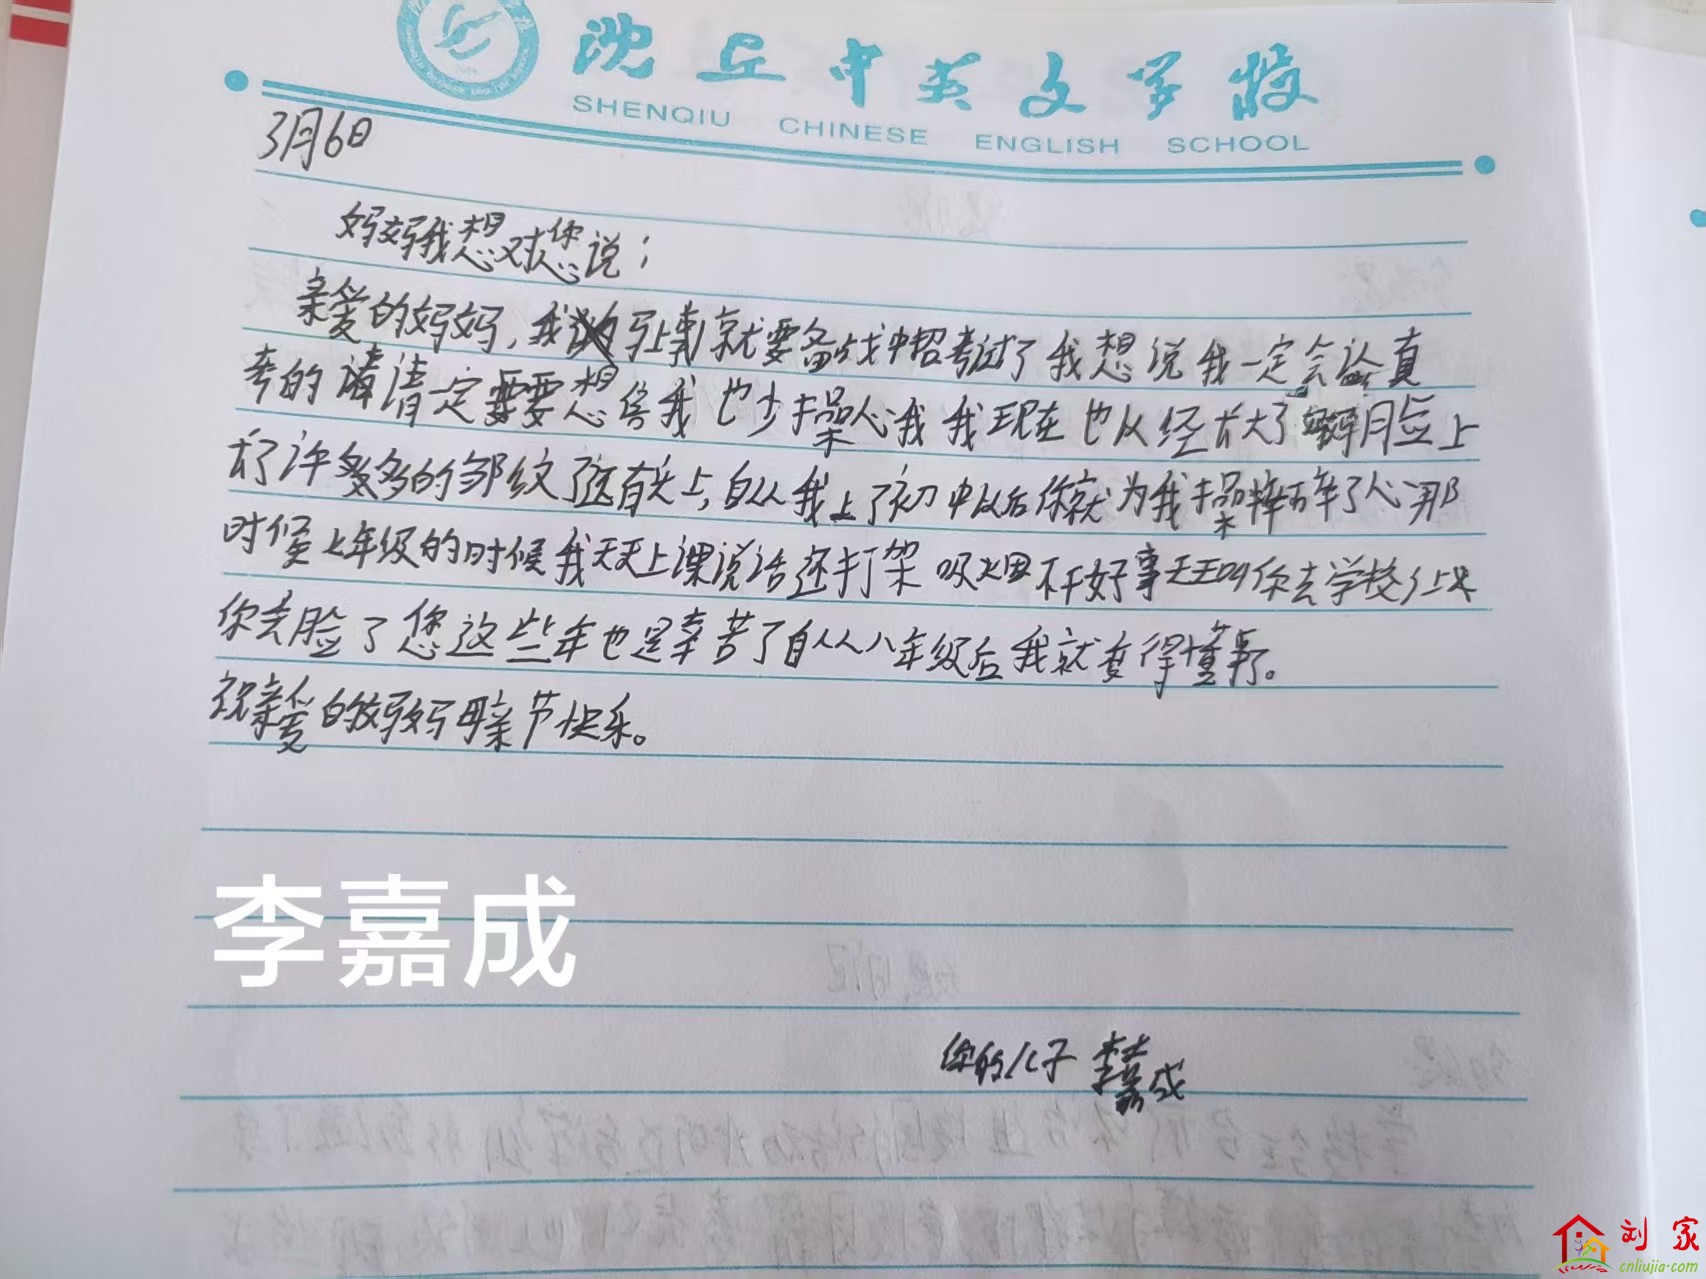 沈丘中英文学校
SHENQIU CHINESE ENGLISH SCHOOL
3月6日
妈妈我想对您说；
亲爱的妈妈，我马上就要备战中招考试了我想说我一定会认真
考的请一定要想信我也少操心我我现在也从经长大了脸上
长了许多多的邹纹了还有头上，自从我上了初中以后你就为我操碎了心那
时候七年级的时候我天天上课说话还打架吸烟不干好事天天叫你去学校让
你丢脸了您这些年也是幸苦了自从从八年级后我就变得懂事了。
祝亲爱的妈妈母亲节快乐。
李嘉成
你的儿子 李嘉成
刘家
cnliujia.com